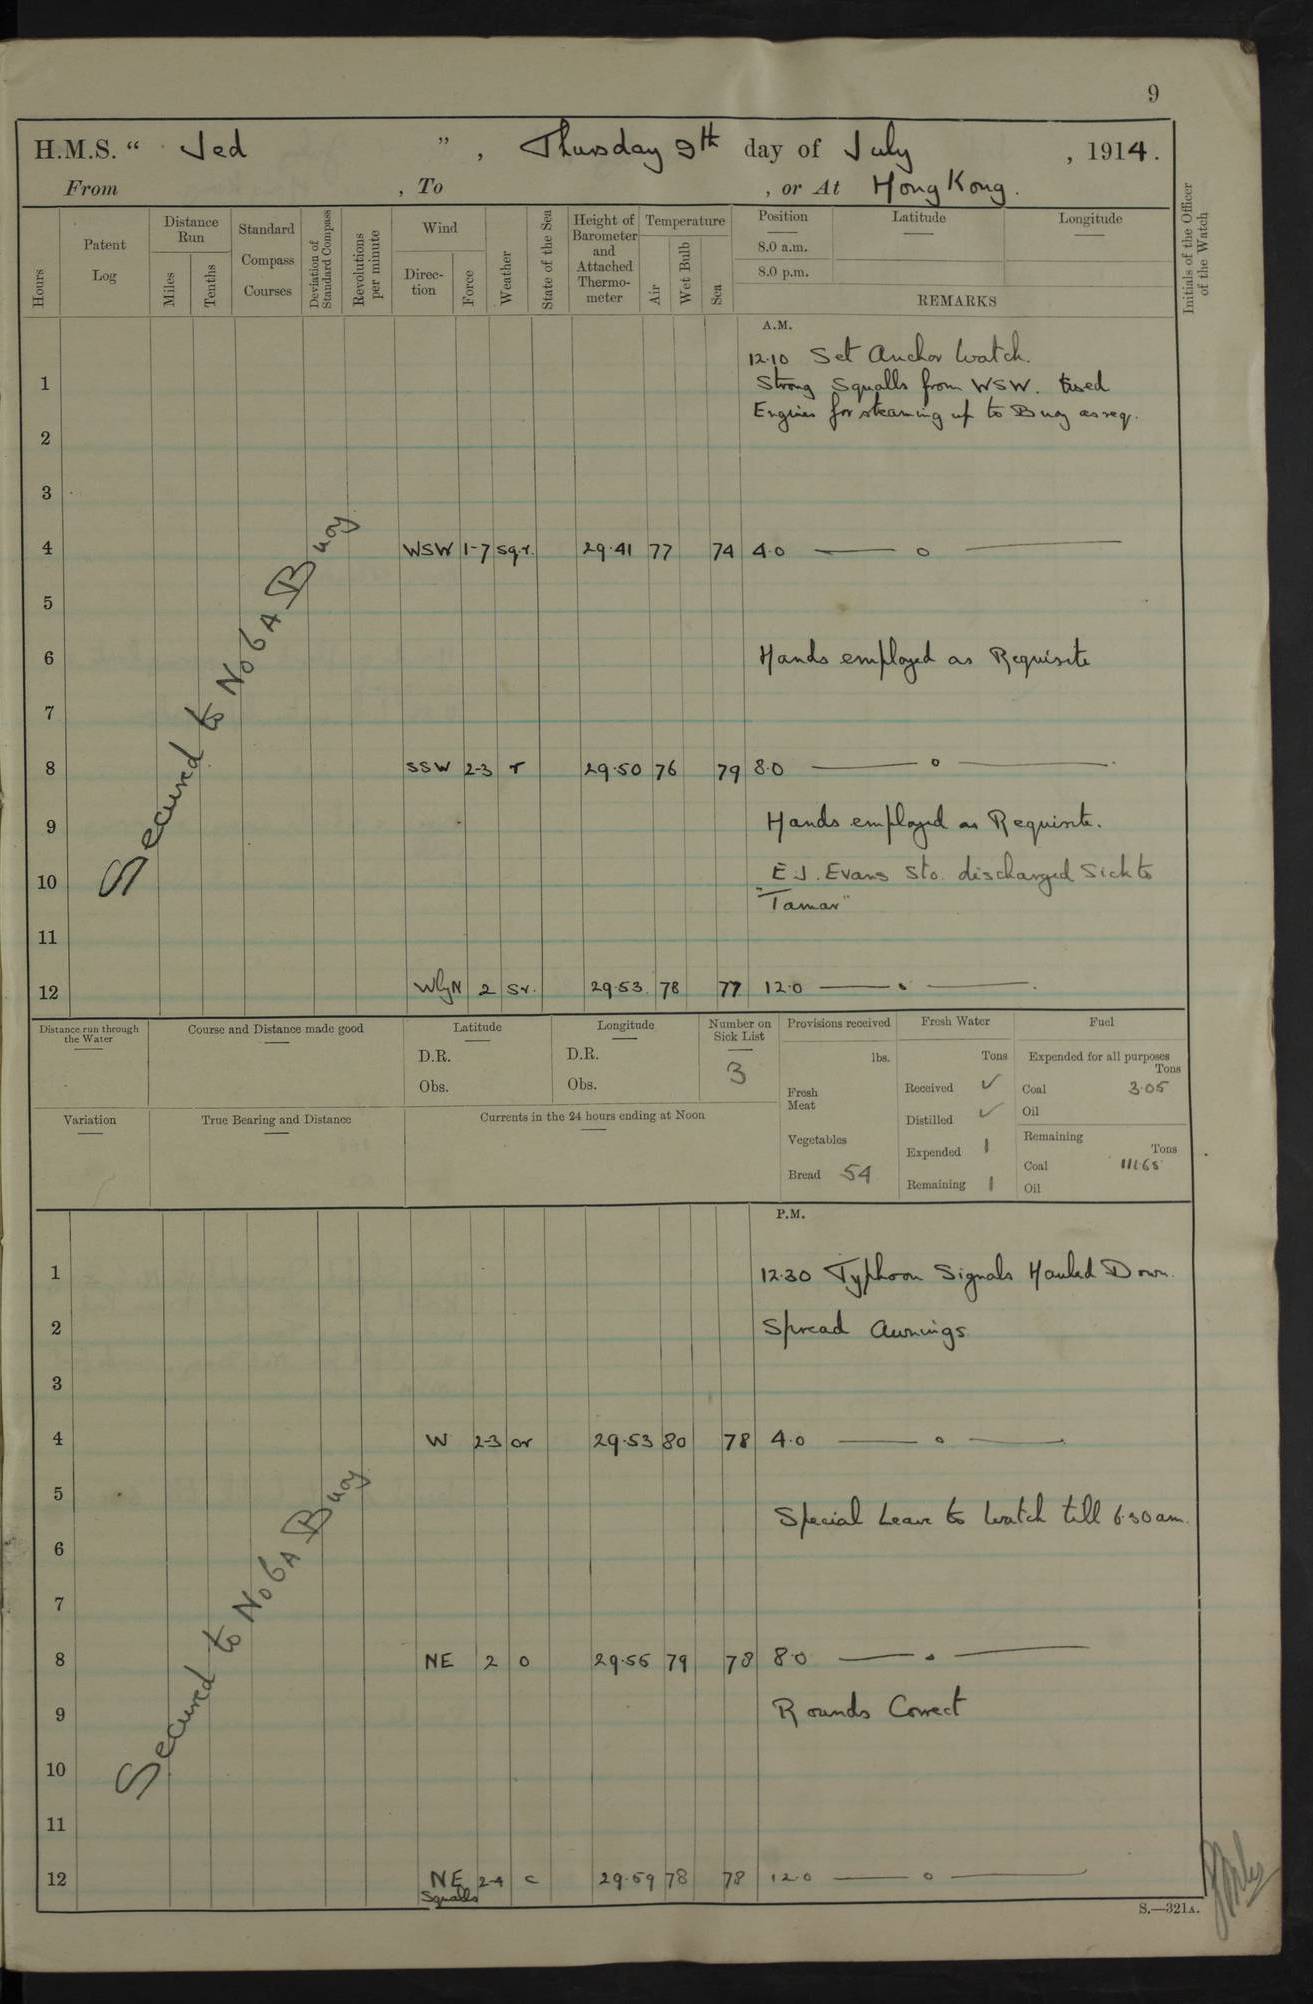 9
H.M.S. “ Jed ” , Thursday 9th day of July , 1914.
From , To , or At Hong Kong.
Hours
Patent Log
Distance Run
Miles
Tenths
Standard Compass Courses
Deviation of Standard Compass
Revolutions per minute
Wind
Direction
Force
Weather
State of the Sea
Height of Barometer and Attached Thermometer
Temperature
Air
Wet Bulb
Sea
Position
8.0 a.m.
8.0 p.m.
Latitude
Longitude
REMARKS
Initials of the Officer of the Watch
A.M.
12.10 Set Anchor Watch.
1 Strong Squalls from WSW. Used
Engines for steaming up to Buoy as req.
2
3
4 WSW 1-7 sq.r. 29.41 77 74 4.0 — o —
5
6 Hands employed as Requisite
7
8 SSW 2-3 r 29.50 76 79 8.0 — o —
9 Hands employed as Requisite.
10 E.J. Evans Sto. discharged Sick to
"Tamar"
11
12 WbyN 2 sr. 29.53 78 77 12.0 — . —
Secured to No 6A Buoy
Distance run through the Water
Course and Distance made good
Latitude
D.R.
Obs.
Longitude
D.R.
Obs.
Number on Sick List
3
Provisions received
lbs.
Fresh Meat
Vegetables
Bread 54
Fresh Water
Tons
Received ✓
Distilled ✓
Expended 1
Remaining 1
Fuel
Expended for all purposes
Tons
Coal 3.05
Oil
Remaining
Tons
Coal 111.65
Oil
Variation
True Bearing and Distance
Currents in the 24 hours ending at Noon
P.M.
1 12.30 Typhoon Signals Hauled Down.
2 Spread Awnings
3
4 W 2-3 or 29.53 80 78 4.0 — o —
5 Special Leave to Watch till 6.30am.
6
7
8 NE 2 o 29.56 79 78 8.0 — . —
9 Rounds Correct
10
11
12 NE 2-4 c 29.59 78 78 12.0 — o —
Squalls
Secured to No 6A Buoy
S.—321A.